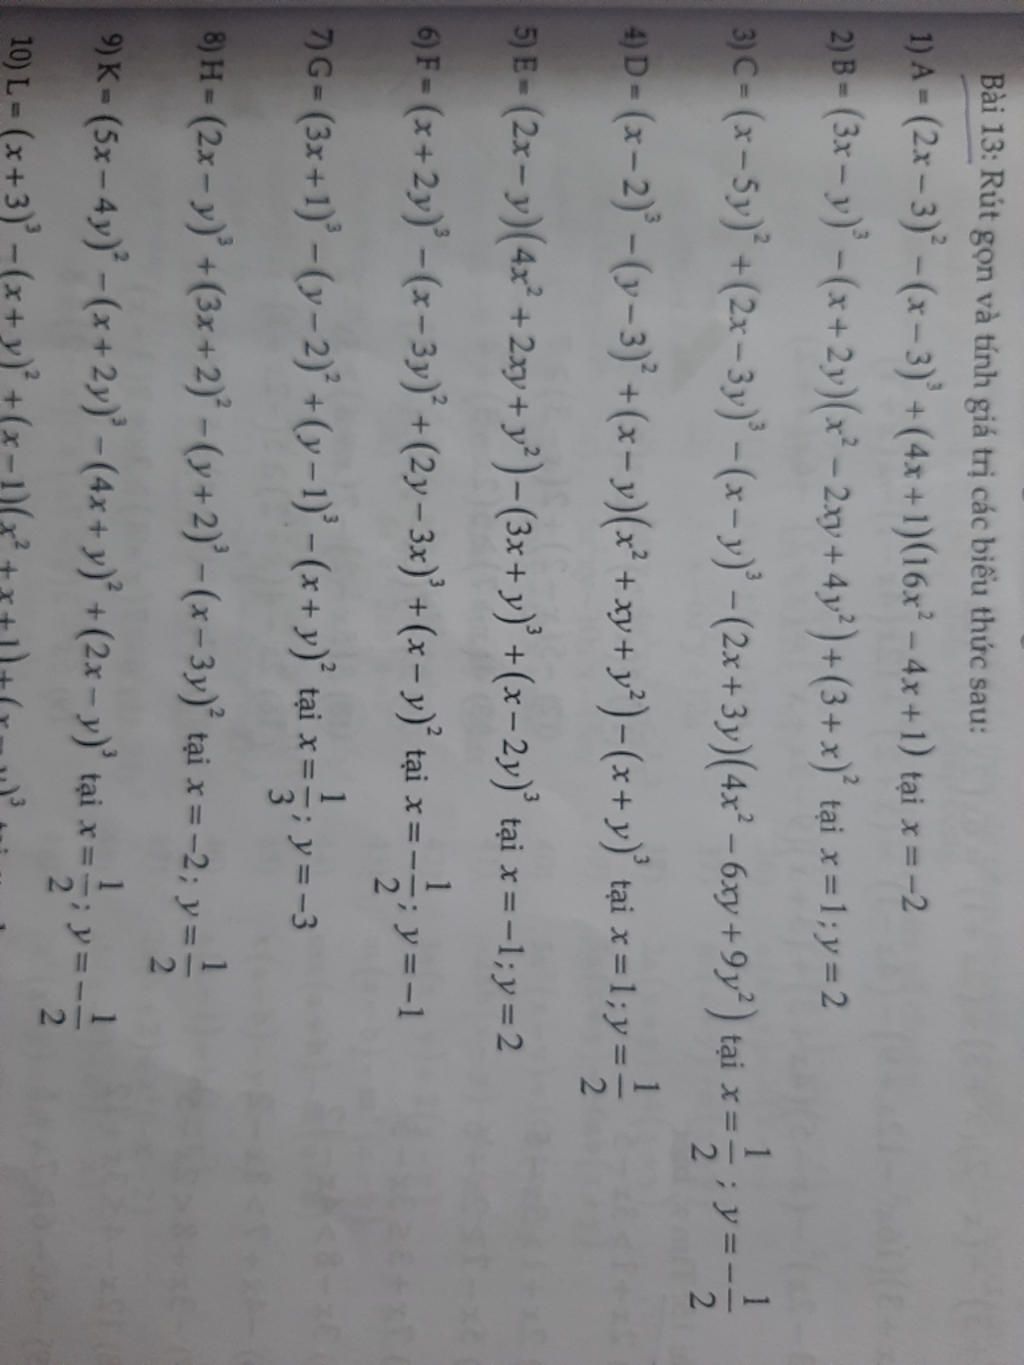 Bài 13: Rút gọn và tính giá trị các biểu thức sau:
1) A = (2x − 3)² − (x − 3)³ + (4x + 1)(16x² − 4x + 1) tại x = −2
2) B = (3x − y)³ − (x + 2y)(x² − 2xy + 4y²) + (3 + x)² tại x = 1; y = 2
3) C = (x − 5y)² + (2x − 3y)³ − (x − y)³ − (2x + 3y)(4x² − 6xy + 9y²) tại x = 1/2; y = −1/2
4) D = (x − 2)³ − (y − 3)² + (x − y)(x² + xy + y²) − (x + y)³ tại x = 1; y = 1/2
5) E = (2x − y)(4x² + 2xy + y²) − (3x + y)³ + (x − 2y)³ tại x = −1; y = 2
6) F = (x + 2y)³ − (x − 3y)² + (2y − 3x)³ + (x − y)² tại x = −1/2; y = −1
7) G = (3x + 1)³ − (y − 2)² + (y − 1)³ − (x + y)² tại x = 1/3; y = −3
8) H = (2x − y)³ + (3x + 2)² − (y + 2)³ − (x − 3y)² tại x = −2; y = 1/2
9) K = (5x − 4y)² − (x + 2y)³ − (4x + y)² + (2x − y)³ tại x = 1/2; y = −1/2
10) L = (x + 3)³ − (x + y)² + (x − 1)(x² + x + 1) + (x − y)³